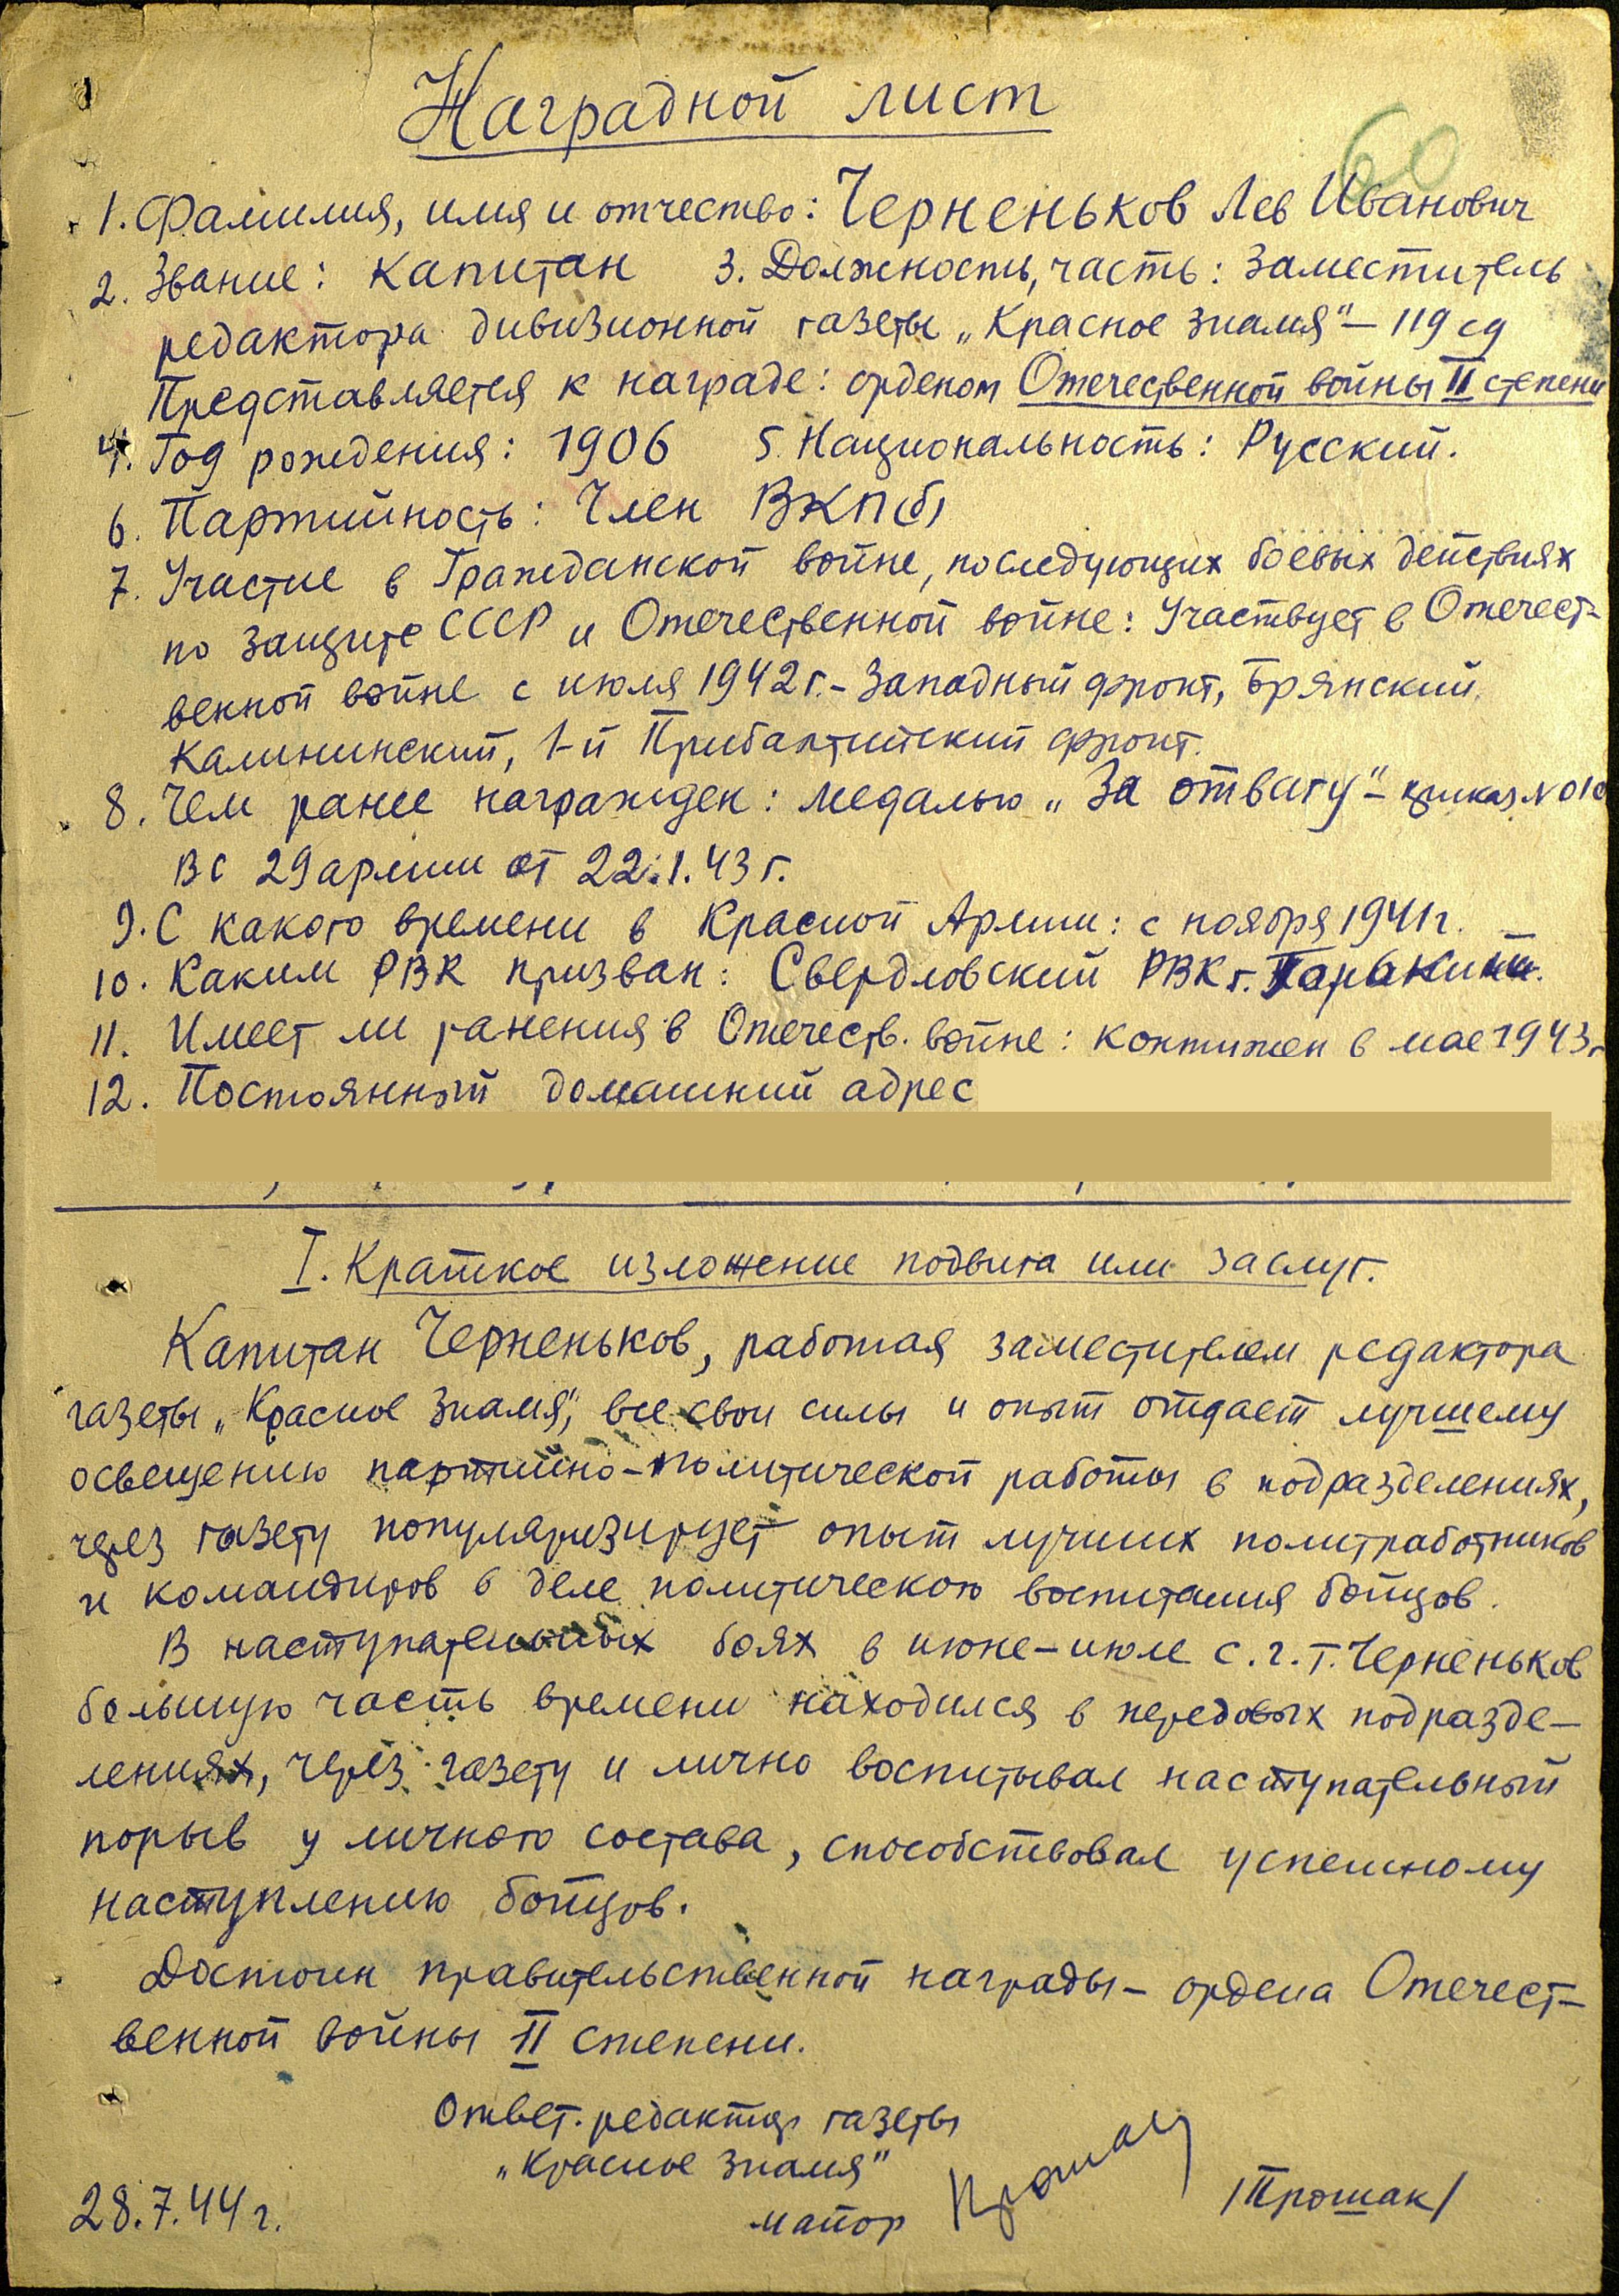 60
Наградной лист
1. Фамилия, имя и отчество: Черненьков Лев Иванович
2. Звание: Капитан 3. Должность, часть: Заместитель
редактора дивизионной газеты „Красное знамя“ – 119 сд
Представляется к награде: орденом Отечественной войны II степени
4. Год рождения: 1906 5. Национальность: Русский.
6. Партийность: Член ВКП(б)
7. Участие в Гражданской войне, последующих боевых действиях
по защите СССР и Отечественной войне: Участвует в Отечест-
венной войне с июля 1942 г. – Западный фронт, Брянский,
Калининский, 1-й Прибалтийский фронт.
8. Чем ранее награжден: медалью „За отвагу“ – приказ N 010
ВС 29 армии от 22.1.43 г.
9. С какого времени в Красной Армии: с ноября 1941 г.
10. Каким РВК призван: Свердловский РВК г.
11. Имеет ли ранения в Отечеств. войне: контужен в мае 1943 г
12. Постоянный домашний адрес
I. Краткое изложение подвига или заслуг.
Капитан Черненьков, работая заместителем редактора
газеты „Красное знамя“, все свои силы и опыт отдает лучшему
освещению партийно-политической работы в подразделениях,
через газету популяризирует опыт лучших политработников
и командиров в деле политического воспитания бойцов.
В наступательных боях в июне-июле с. г. т. Черненьков
большую часть времени находился в передовых подразде-
лениях, через газету и лично воспитывал наступательный
порыв у личного состава, способствовал успешному
наступлению бойцов.
Достоин правительственной награды – ордена Отечест-
венной войны II степени.
Ответ. редактор газеты
„Красное знамя“
майор /Трошак/
28.7.44 г.